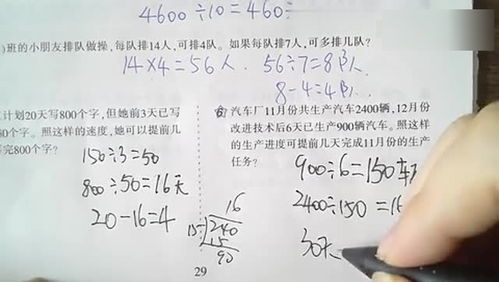 4600÷10=460÷
)班的小朋友排队做操,每队排14人,可排4队。如果每队排7人,可多排几队?
14×4=56人. 56÷7=8队.
8-4=4队.
计划20天写800个字,但她前3天已写
0个字。照这样的速度,她可以提前几
完800个字?
150÷3=50
800÷50=16天
20-16=4
汽车厂11月份共生产汽车2400辆,12月份
改进技术后6天已生产900辆汽车。照这样
的生产进度可提前几天完成11月份的生产
任务?
900÷6=150
2400÷150=16
30天
16
240
15
90
29